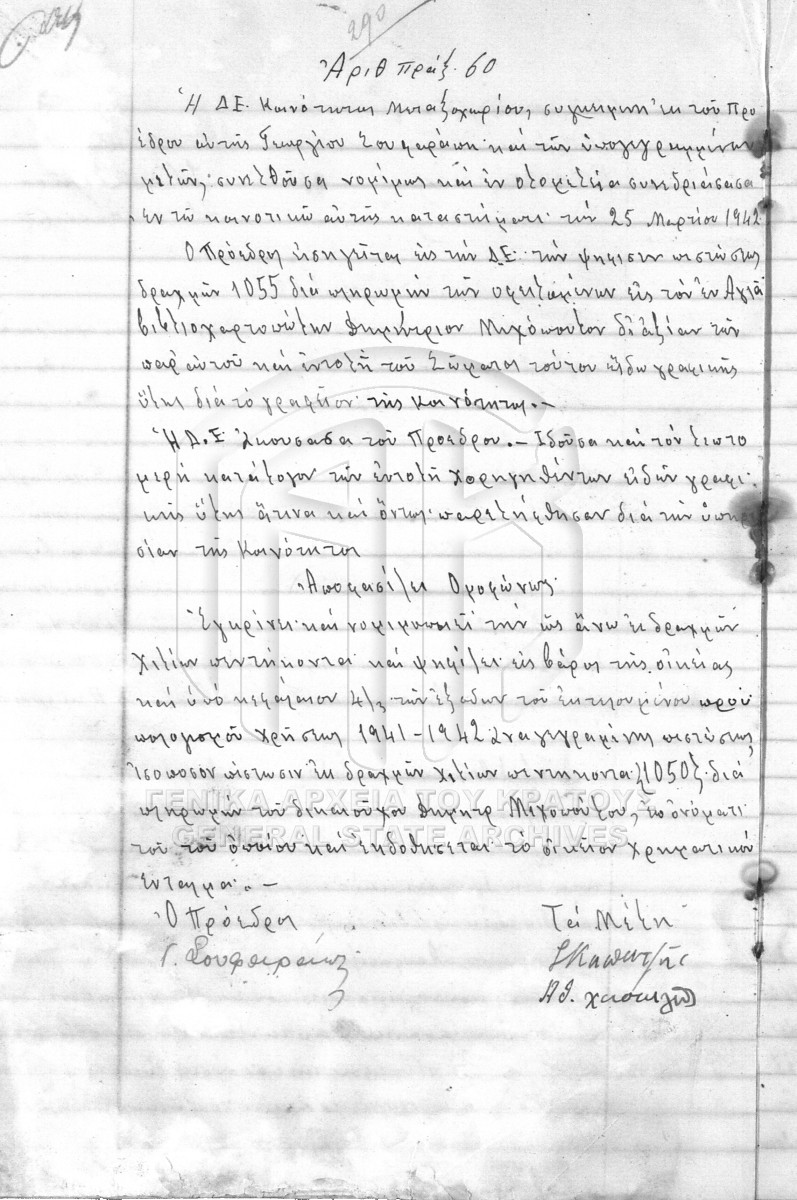 290
Ἀριθ πράξ. 60
Ἡ ΔΕ. Κοινότητος Μεταξοχωρίου, συγκειμένη ἐκ τοῦ Προ
έδρου αὐτῆς Γεωργίου Σουφαράπη καί τῶν ὑπογεγραμμένων
μελῶν, συνελθοῦσα νομίμως καί ἐν ὁλομελεία συνεδριάσασα
ἐν τῶ κοινοτικῶ αὐτῆς καταστήματι τήν 25 Μαρτίου 1942
Ὁ Πρόεδρος εἰσηγεῖται εἰς τήν Δ.Ε. τήν ψήφισιν πιστώσεως
δραχμῶν 1055 διά πληρωμήν τῶν ὀφειλομένων εἰς τόν ἐν Ἀγιᾶ
βιβλιοχαρτοπώλην Δημήτριον Μιχόπουλον δι' ἀξίαν τῶν
παρ' αὐτοῦ καί ἐντολῆ τοῦ Σώματος τούτου εἴδη γραφικῆς
ὕλης διά τό γραφεῖον τῆς Κοινότητος. —
Ἡ Δ.Ε Ἀκούσασα τοῦ Προέδρου. — Ἰδοῦσα καί τόν λεπτο
μερῆ κατάλογον τῶν ἐντολῆ χορηγηθέντων εἰδῶν γραφι
κῆς ὕλης ἅτινα καί ὄντως παρελήφθησαν διά τήν ὑπηρε
σίαν τῆς Κοινότητος
Ἀποφασίζει Ὁμοφώνως
Ἐγκρίνει καί νομιμοποιεῖ τήν ὡς ἄνω ἐκ δραχμῶν
χιλίων πεντήκοντα καί ψηφίζει εἰς βάρος τῆς οἰκείας
καί ὑπό κεφάλαιον 4/3 τῶν ἐξόδων τοῦ ἐκτελουμένου προϋ
πολογισμοῦ χρήσεως 1941-1942 ἀναγεγραμένης πιστώσεως,
ἰσόποσον πίστωσιν ἐκ δραχμῶν χιλίων πεντήκοντα (1050) διά
πληρωμήν τοῦ δικαιούχου Δημητρ Μιχοπούλου, ἐπ' ὀνόματι
τοῦ τοῦ ὁποίου καί ἐκδοθήσεται τό οἰκεῖον χρηματικόν
ἔνταλμα. —
Ὁ Πρόεδρος Τά Μέλη
Γ. Σουφαράπης
ΓΕΝΙΚΑ ΑΡΧΕΙΑ ΤΟΥ ΚΡΑΤΟΥΣ
GENERAL STATE ARCHIVES